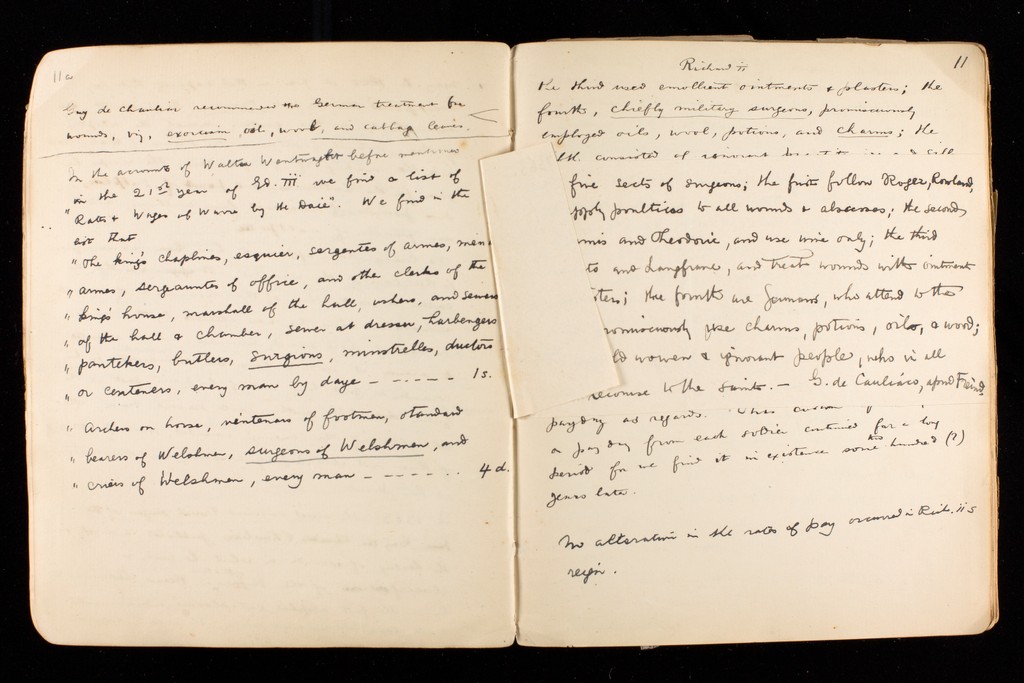 11a
Guy de Chauliac recommended the German treatment for
wounds, viz, exorcism, oil, wool, and cabbage leaves.
In the accounts of Walter Wentwaght before mentioned
"in the 21st year of Ed. III we find a list of
"Rates & Wages of Warre by the Daie". We find in the
list that
"The king's chaplines, esquier, sergentes of armes, men
" armes, sergeauntes of office, and othe clerks of the
" king's house, marshall of the hall, ushers, and sewers
" of the hall & chamber, sewer at dresser, harbengers
" pantekers, butlers, surgions, minstrelles, ductors
" or centeners, every man by daye - - - - - - 1s.
" Archers on horse, vinteners of footmen, standard
" bearers of Welshmen, surgeons of Welshmen, and
" criers of Welshmen, every man - - - - - - . . 4d.
Richard II
11
the third used emollient ointments & plasters; the
fourth, chiefly military surgeons, promiscuously
employed oils, wool, potions, and charms; the
consisted of ignorant
five sects of surgeons; the first follow Roger, Rowland,
apply poultices to all wounds & abscesses; the second
and Theodoric, and use wine only; the third
and Langfranc, and treat wounds with ointment
the fourth are Germans, who attend to the
promiscuously use charms, potions, oils, & wool;
old women & ignorant people, who in all
recourse to the saints. — G. de Cauliaco, apud Freind
payday as regards
a pay day from each soldier continued for a long
period for we find it in existence some two hundred (?)
years late.
No alteration in the rates of pay occurred in Rich. ii s
reign.